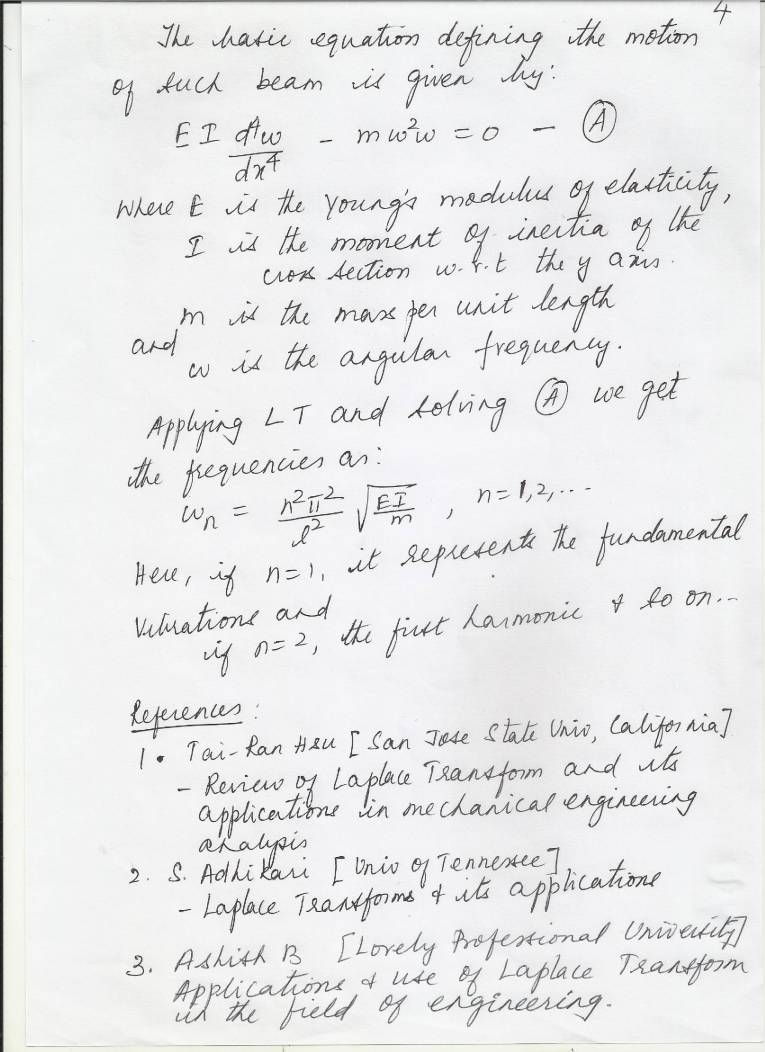 4
The basic equation defining the motion
of such beam is given by:
E I d⁴w/dx⁴ - mω²w = 0 - Ⓐ
Where E is the Young's modulus of elasticity,
I is the moment of inertia of the
cross section w.r.t the y axis.
m is the mass per unit length
and
ω is the angular frequency.
Applying LT and solving Ⓐ we get
the frequencies as:
ωn = n²π²/l² √(EI/m) , n=1,2,...
Here, if n=1, it represents the fundamental
Vibrations and
if n=2, the first harmonic & so on...
References:
1. Tai-Ran Hsu [San Jose State Univ, California]
- Review of Laplace Transform and its
applications in mechanical engineering
analysis
2. S. Adhikari [Univ of Tennessee]
- Laplace Transforms & its applications
3. Ashish B [Lovely Professional University]
Applications & use of Laplace Transform
in the field of engineering.